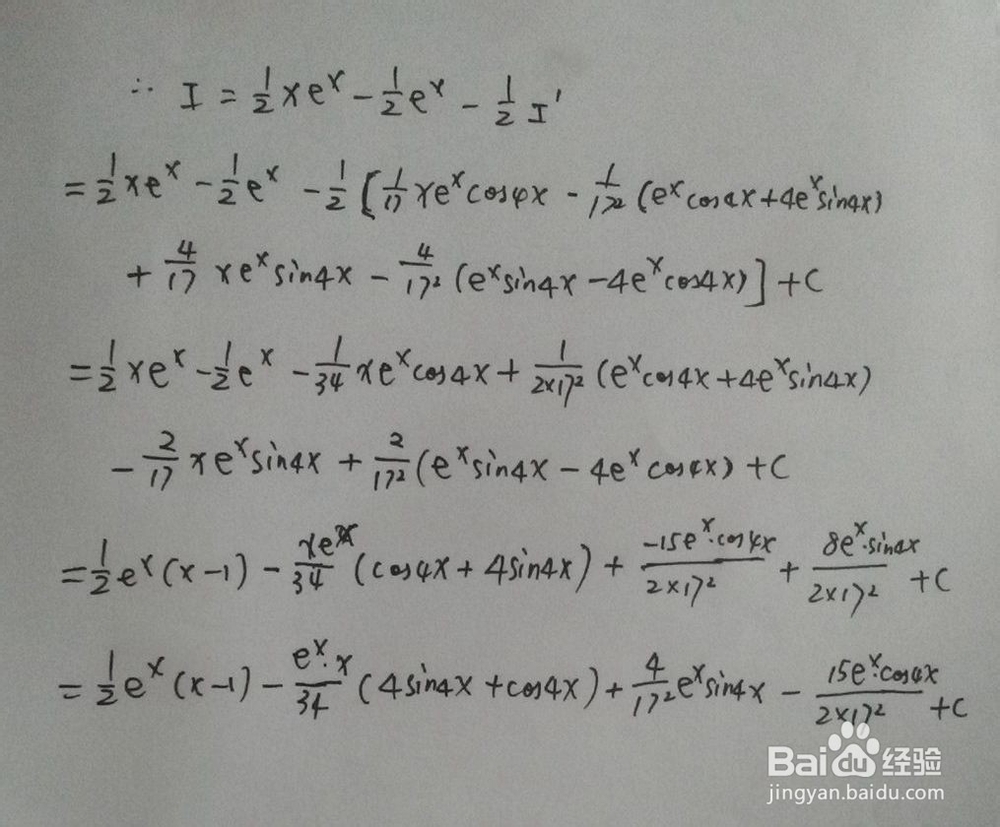 ∴ I = 1/2 xe^x - 1/2 e^x - 1/2 I'
= 1/2 xe^x - 1/2 e^x - 1/2 [1/17 xe^x cos4x - 1/17² (e^x cos4x + 4e^x sin4x)
+ 4/17 xe^x sin4x - 4/17² (e^x sin4x - 4e^x cos4x)] + C
= 1/2 xe^x - 1/2 e^x - 1/34 xe^x cos4x + 1/2×17² (e^x cos4x + 4e^x sin4x)
- 2/17 xe^x sin4x + 2/17² (e^x sin4x - 4e^x cos4x) + C
= 1/2 e^x (x-1) - xe^x/34 (cos4x + 4sin4x) + -15e^x·cos4x/2×17² + 8e^x·sin4x/2×17² + C
= 1/2 e^x (x-1) - e^x·x/34 (4sin4x + cos4x) + 4/17² e^x sin4x - 15e^x·cos4x/2×17² + C
Baidu 经验
jingyan.baidu.com